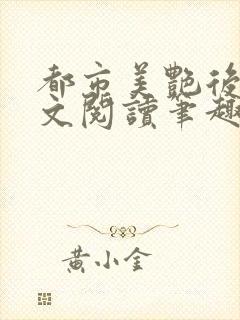 都市美艷後
文閱讀筆趣
黃小金